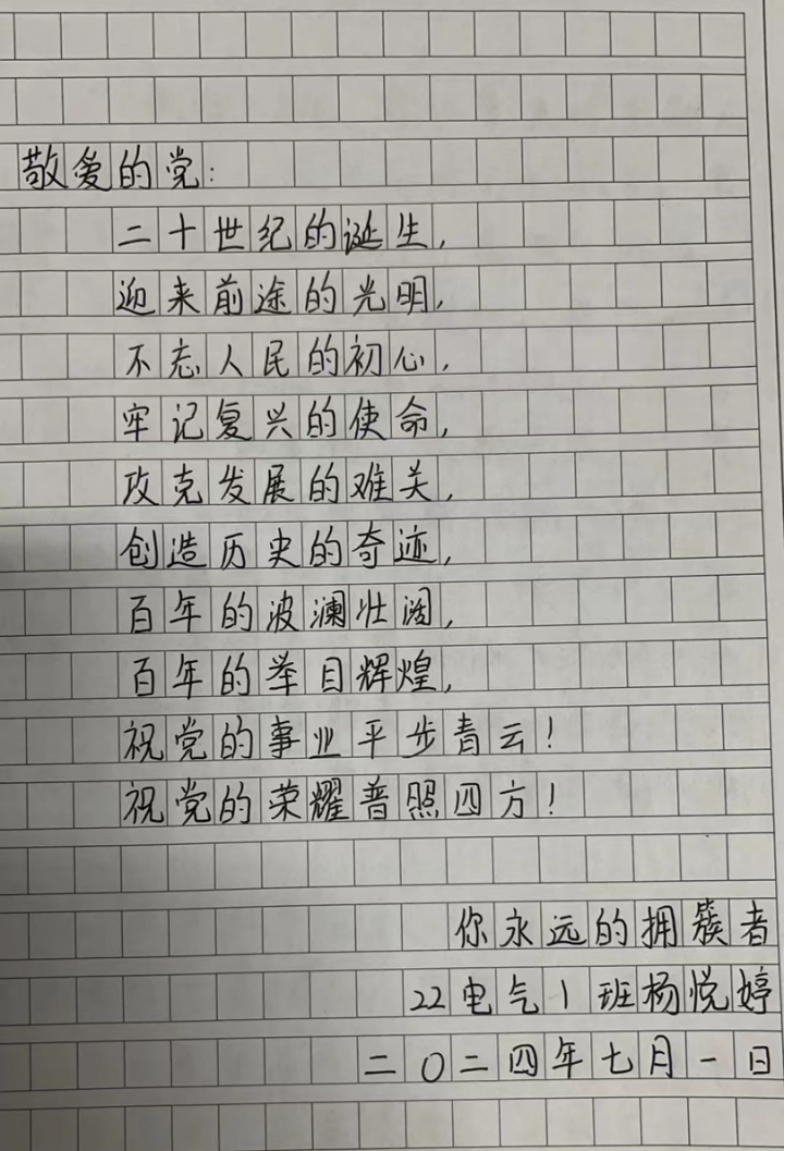 敬爱的党:
二十世纪的诞生,
迎来前途的光明,
不忘人民的初心,
牢记复兴的使命,
攻克发展的难关,
创造历史的奇迹,
百年的波澜壮阔,
百年的举目辉煌,
祝党的事业平步青云!
祝党的荣耀普照四方!
你永远的拥簇者
22电气1班杨悦婷
二〇二四年七月一日